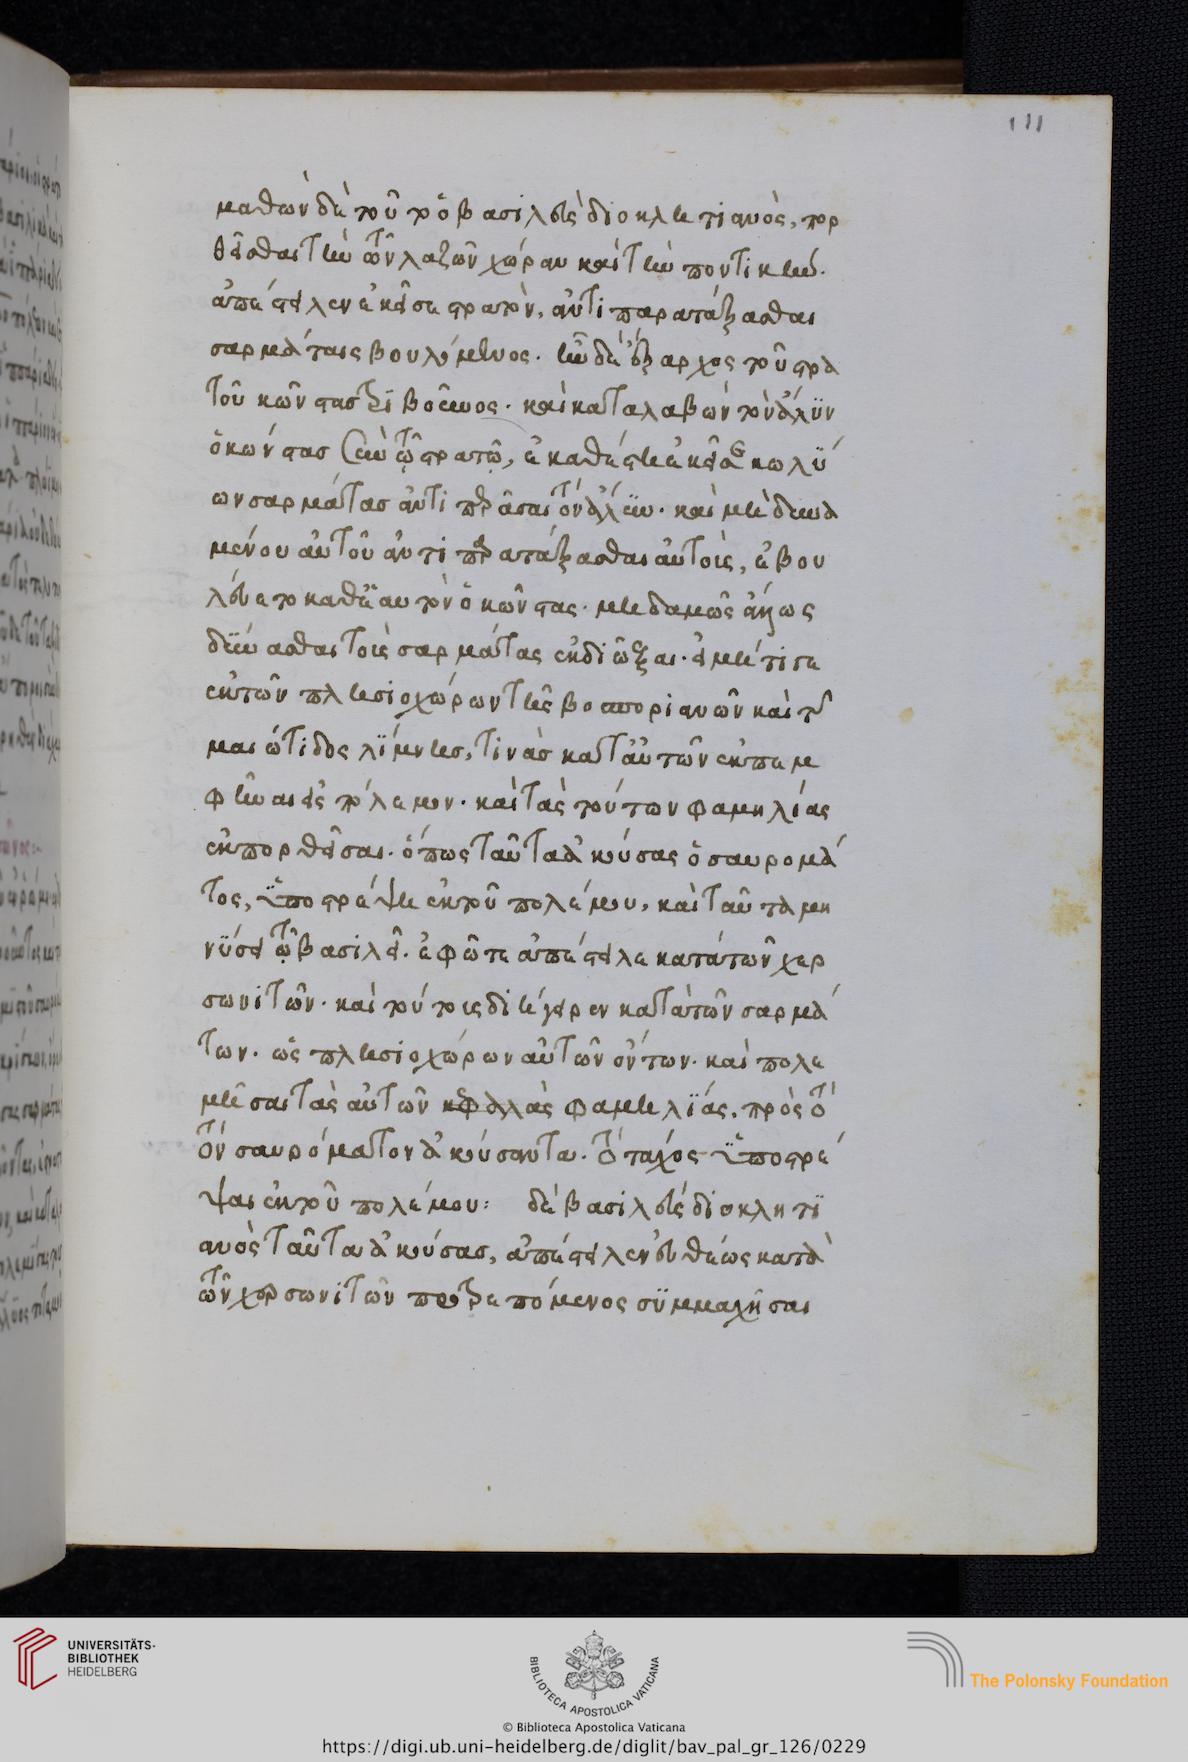 111
μαθὼν δὲ τοῦτο ὁ βασιλεὺς διοκλητιανὸς, πορ
θεῖσθαι τὴν τῶν λαζῶν χώραν καὶ τὴν ποντικήν.
ἀπέστειλεν ἐκεῖσε στρατὸν, ἀντιπαρατάξασθαι
σαρμάταις βουλόμενος. ἦν δὲ ἔξαρχος τοῦ στρα
τοῦ κῶνστας τριβοῦνος. καὶ καταλαβὼν τὸν ἅλϋν
ὁ κώνστας σὺν τῷ στρατῷ, ἐκαθέστη ἐκεῖσε κωλύ
ων σαρμάτας ἀντιπερᾶσαι τὸν ἅλϋν. καὶ μὴ δυνα
μένου αὐτοῦ ἀντιπαρατάξασθαι αὐτοῖς, ἐβου
λεύετο καθ' ἑαυτὸν ὁ κῶνστας. μηδαμῶς ἄλλως
δύνασθαι τοὺς σαρμάτας ἐκδιῶξαι. εἰ μή τι γε
ἐκ τῶν πλησιοχώρων τῆς βοσποριανῶν καὶ τῆς
μαιώτιδος λίμνης, τινὰς κατ' αὐτῶν ἐκπεμ
φθῆναι εἰς πόλεμον. καὶ τὰς τούτων φαμηλίας
ἐκπορθεῖσαι. ὅπως ταῦτα ἀκούσας ὁ σαυρομά
τος, ὑποστρέψη ἐκ τοῦ πολέμου, καὶ ταῦτα μη
νύσει τῷ βασιλεῖ. ἐφ' ᾧ τε ἀπέστειλε κατὰ τῶν χερ
σωνιτῶν. καὶ τούτοις διήγειρεν κατὰ τῶν σαρμά
των. ὡς πλησιοχώρων αὐτῶν ὄντων. καὶ πολε
μῆσαι τὰς αὐτῶν φαμηλίας. πρὸς τὸ
τὸν σαυρόματον ἀκούσαντα. τὸ τάχος ὑποστρέ
ψαι ἐκ τοῦ πολέμου: δὲ βασιλεὺς διοκλητι
ανὸς ταῦτα ἀκούσας, ἀπέστειλεν εὐθέως κατὰ
τῶν χερσωνιτῶν προτρεπόμενος συμμαχῆσαι
UNIVERSITÄTS-
BIBLIOTHEK
HEIDELBERG
BIBLIOTECA APOSTOLICA VATICANA
© Biblioteca Apostolica Vaticana
The Polonsky Foundation
https://digi.ub.uni-heidelberg.de/diglit/bav_pal_gr_126/0229